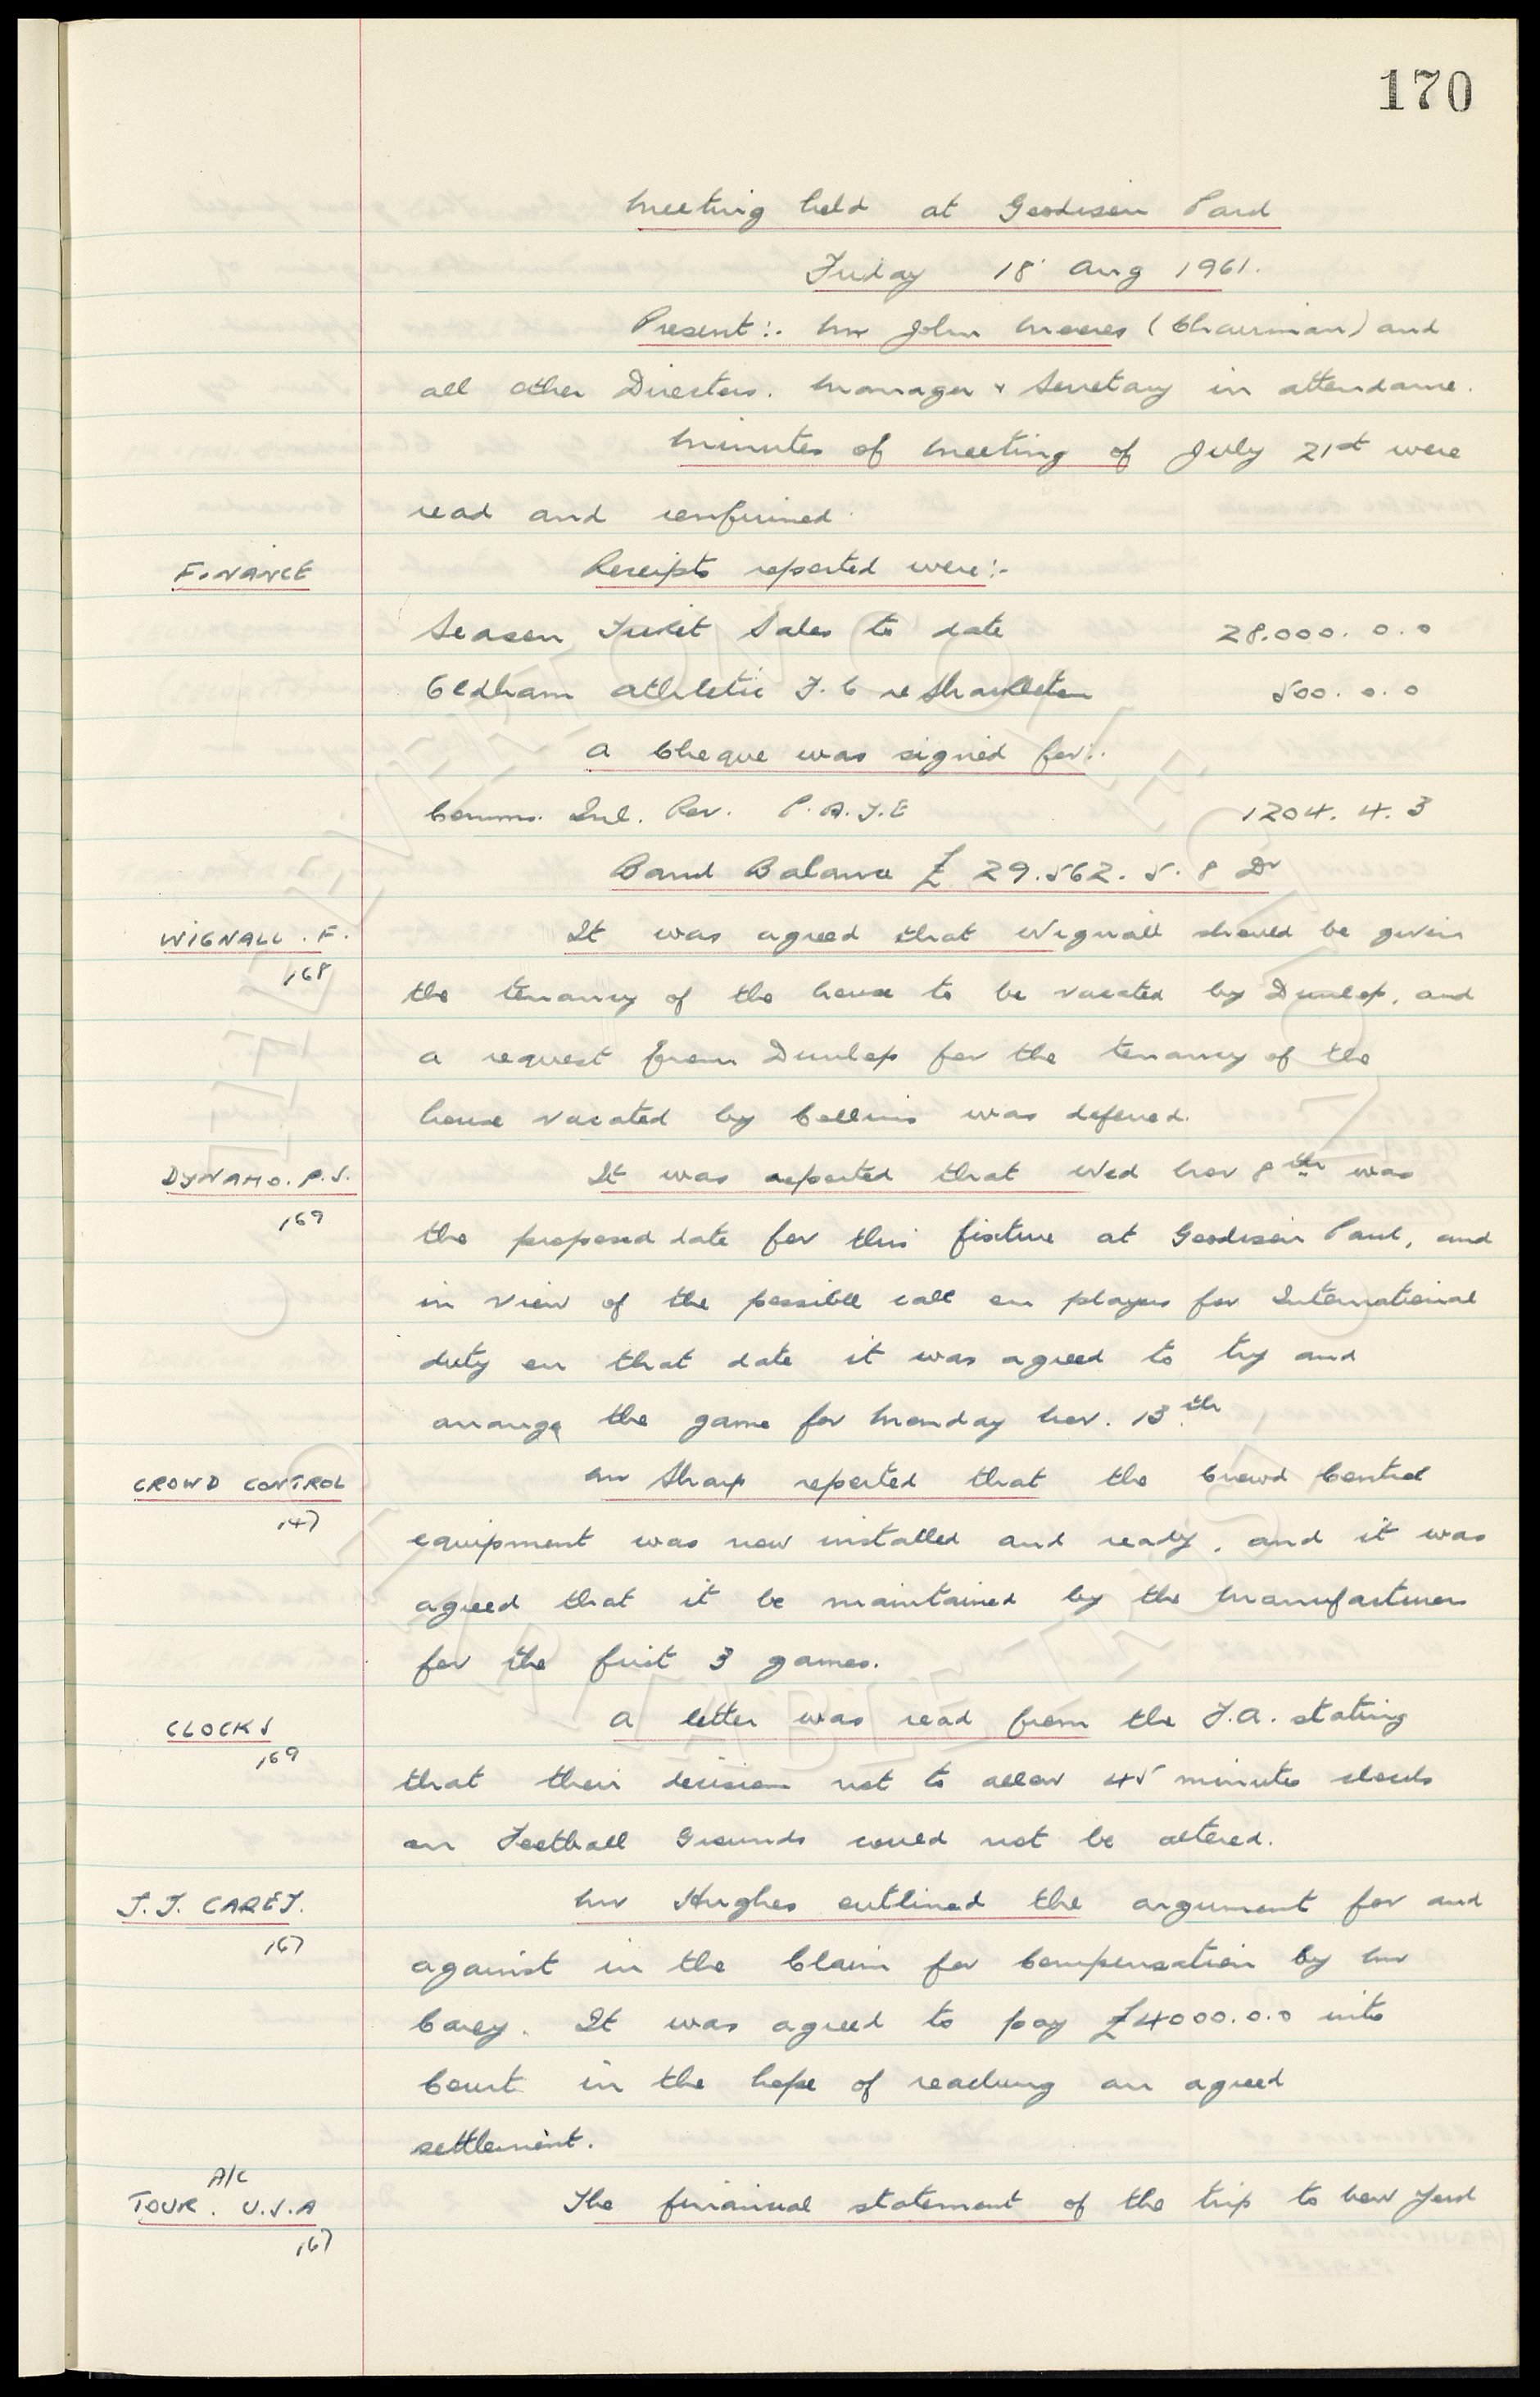 170
Meeting held at Goodison Park
Friday 18 Aug 1961.
Present:- Mr John Moores (Chairman) and
all other Directors. Manager & Secretary in attendance.
Minutes of Meeting of July 21st were
read and confirmed.
FINANCE
Receipts reported were:-
Season Ticket Sales to date 28.000. 0. 0
Oldham Athletic F. C re Shackleton 500. 0. 0
A Cheque was signed for:-
Comms. Inl. Rev. P. A. Y. E 1204. 4. 3
Bank Balance £ 29.562. 5. 8 Dr
WIGNALL. F.
168
It was agreed that Wignall should be given
the tenancy of the house to be vacated by Dunlop, and
a request from Dunlop for the tenancy of the
house vacated by Collins was deferred.
DYNAMO. P.S.
169
It was reported that Wed Nov 8th was
the proposed date for this fixture at Goodison Park, and
in view of the possible call on players for International
duty on that date it was agreed to try and
arrange the game for Monday Nov. 13th
CROWD CONTROL
147
Mr Sharp reported that the Crowd Control
equipment was now installed and ready, and it was
agreed that it be maintained by the Manufacturers
for the first 3 games.
CLOCKS
169
A letter was read from the F.A. stating
that their decision not to allow 45 minutes clocks
on Football Grounds could not be altered.
J. J. CAREY.
167
Mr Hughes outlined the argument for and
against in the Claim for Compensation by Mr
Carey. It was agreed to pay £4000.0.0 into
Court in the hope of reaching an agreed
settlement.
A/C
TOUR. U.S.A
167
The financial statement of the trip to New York